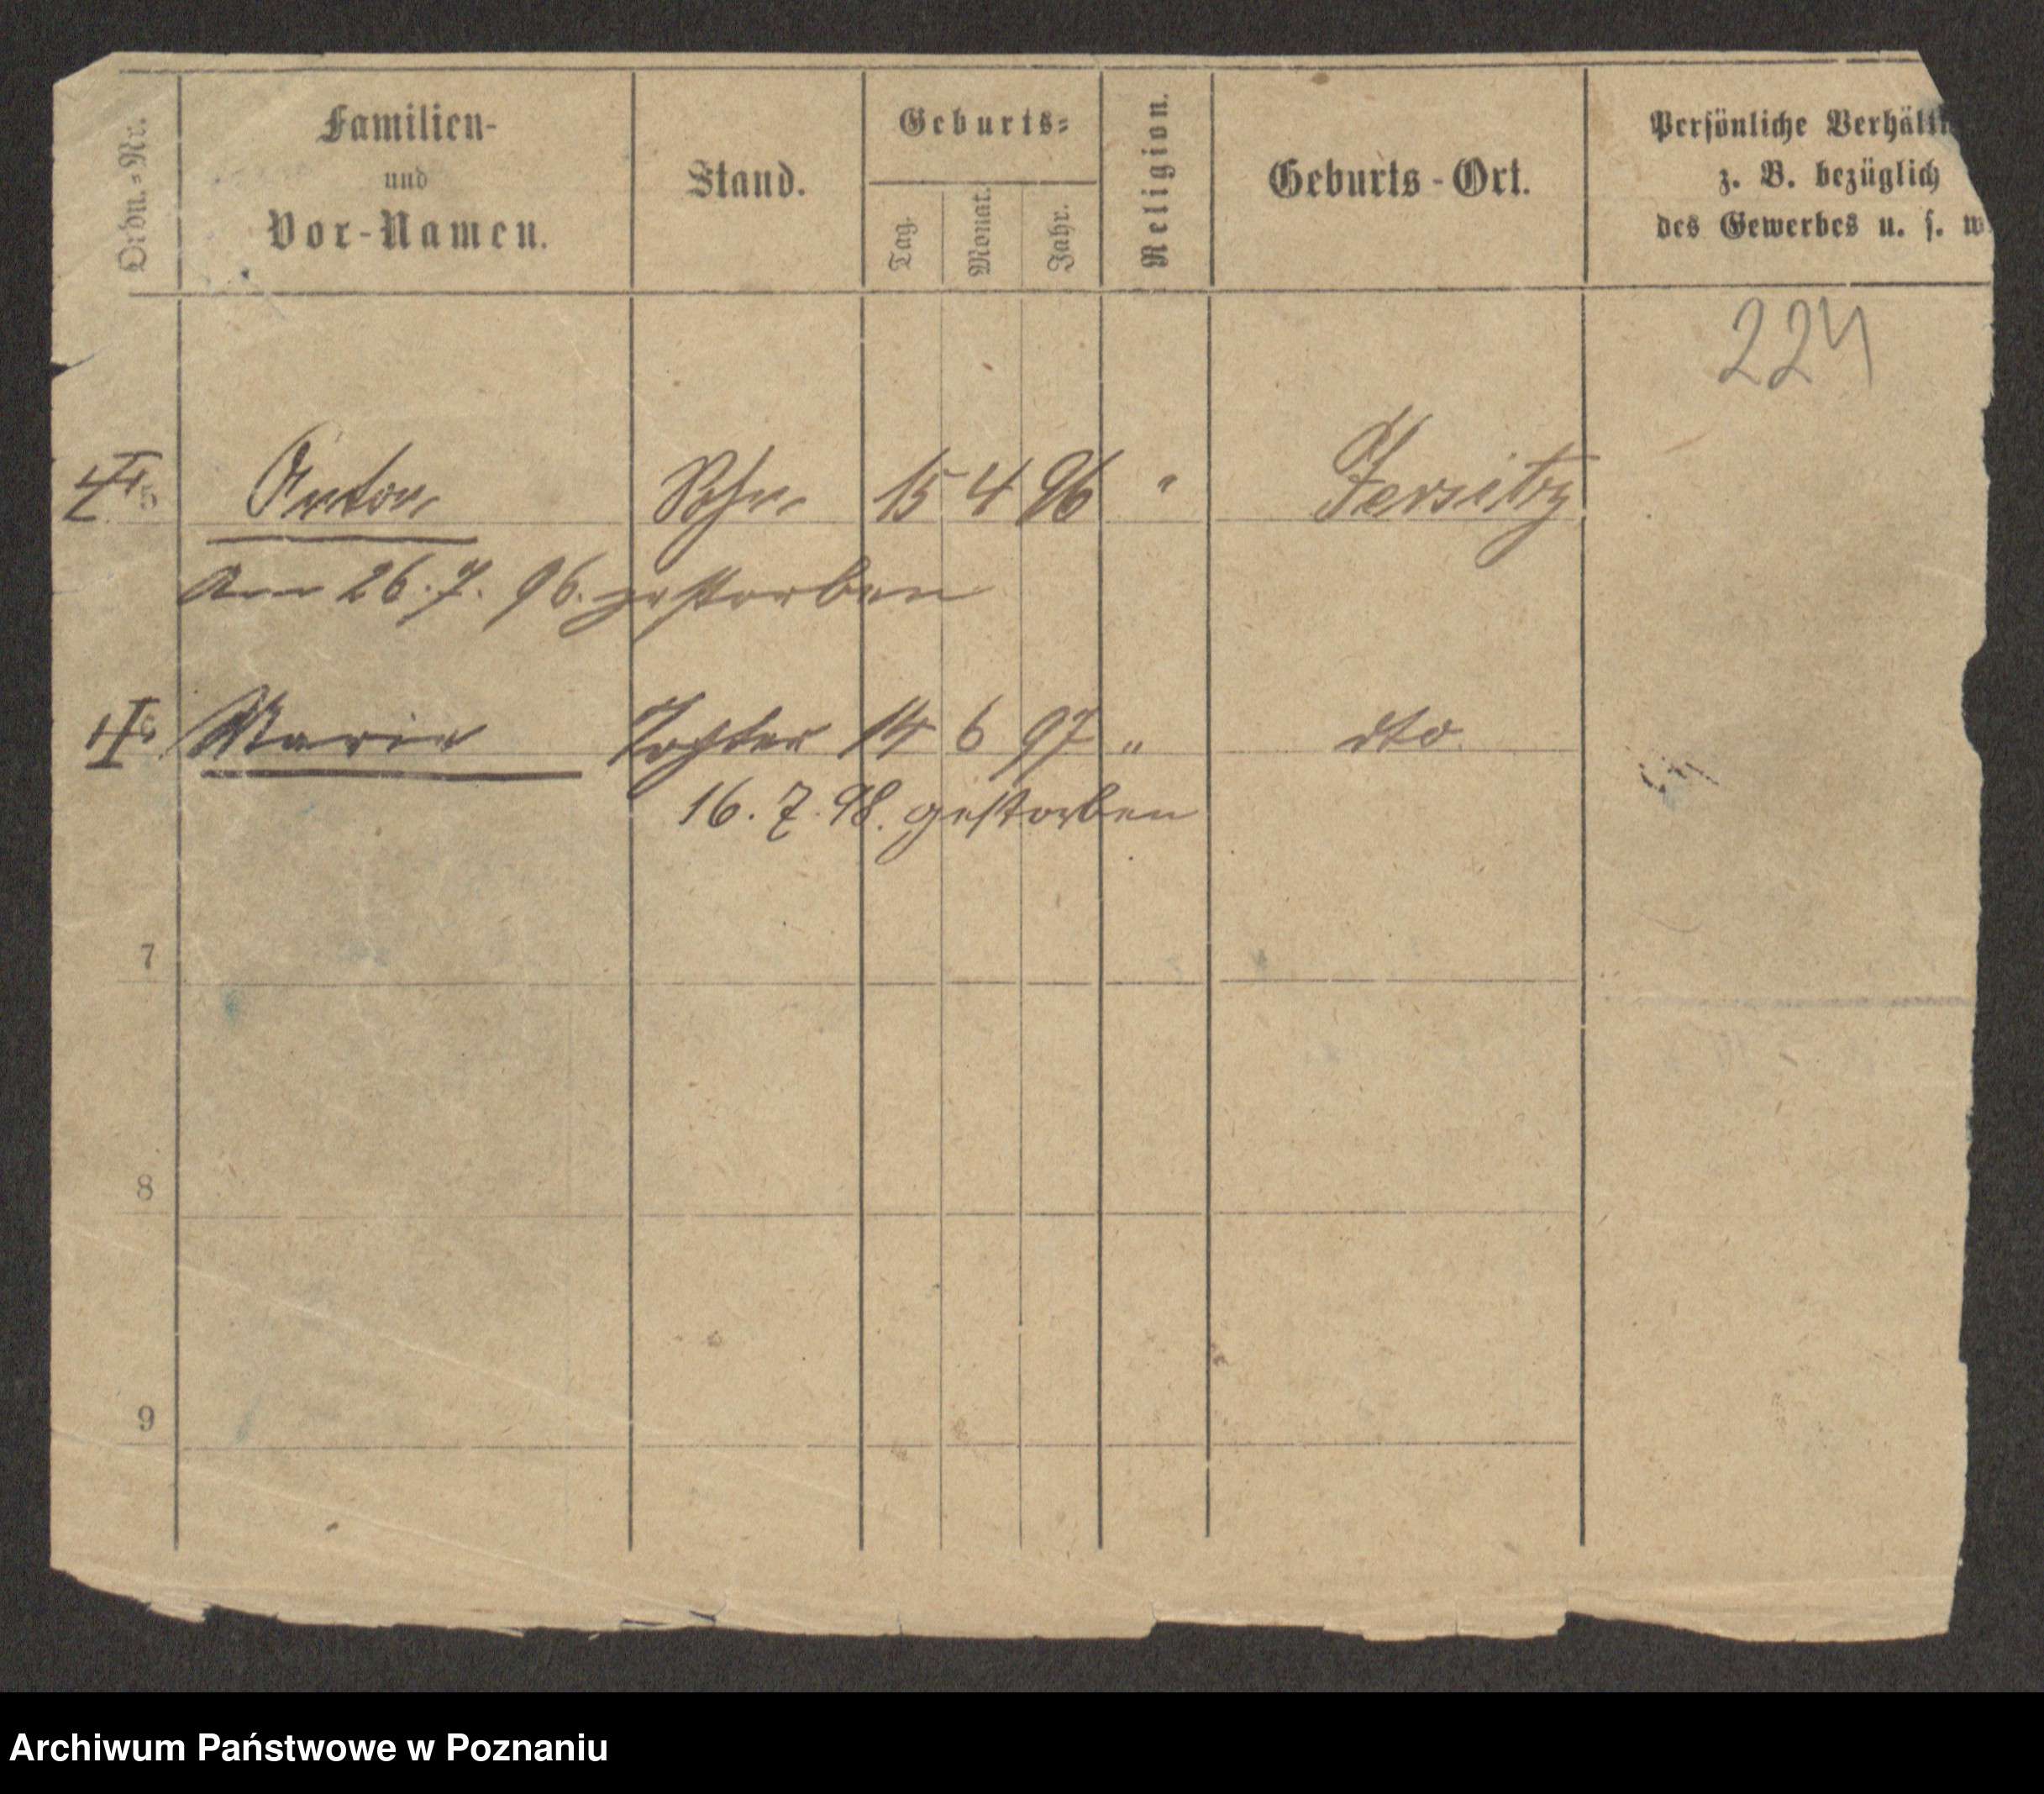 Ordn.-Nr.
Familien-
und
Vor-Namen.
Stand.
Geburts-
Tag.
Monat.
Jahr.
Religion.
Geburts-Ort.
Persönliche Verhält
z. B. bezüglich
des Gewerbes u. s. w.
224
5 Anton Sohn 15 4 96 " Jersitz
Am 26.7.96. gestorben
6 Marie Tochter 14 6 97 " dto
16.7.98. gestorben
7
8
9
Archiwum Państwowe w Poznaniu